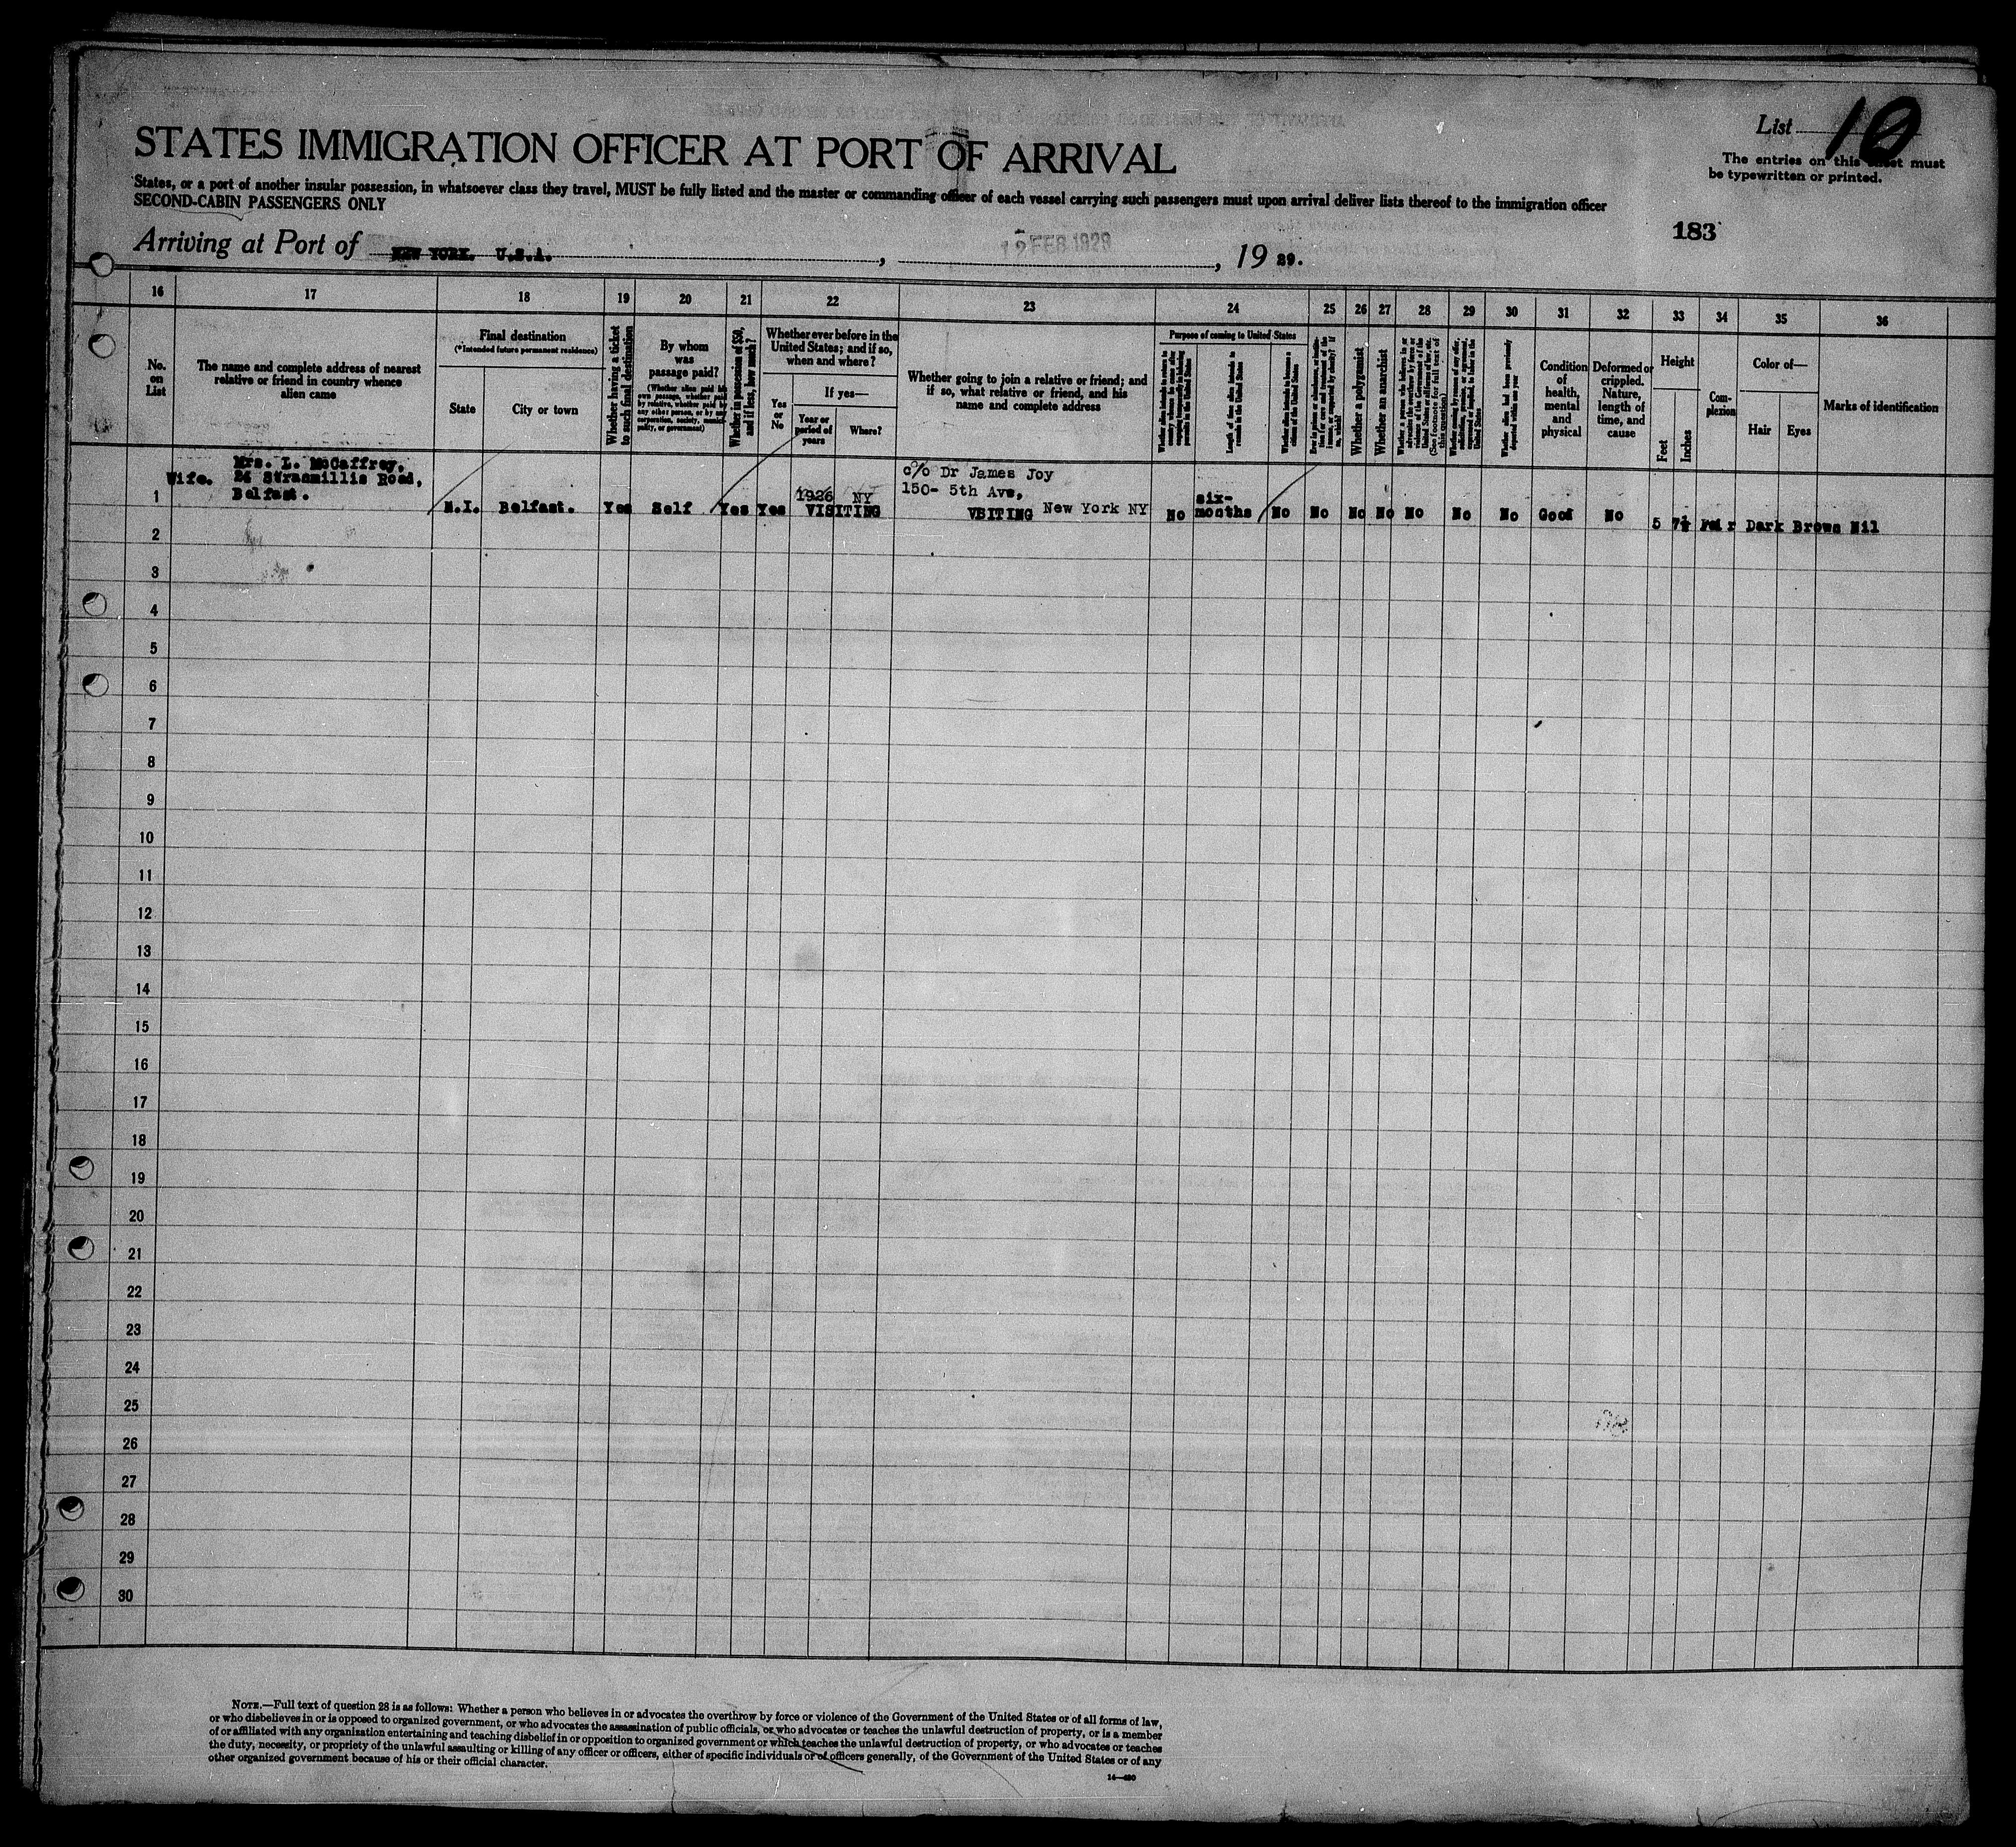 STATES IMMIGRATION OFFICER AT PORT OF ARRIVAL
List 10
The entries on this sheet must
be typewritten or printed.
States, or a port of another insular possession, in whatsoever class they travel, MUST be fully listed and the master or commanding officer of each vessel carrying such passengers must upon arrival deliver lists thereof to the immigration officer
SECOND-CABIN PASSENGERS ONLY
183
Arriving at Port of NEW YORK. U.S.A. , 12 FEB 1929 , 19 29.
16 17 18 19 20 21 22 23 24 25 26 27 28 29 30 31 32 33 34 35 36
No.
on
List
The name and complete address of nearest
relative or friend in country whence
alien came
Final destination
(*Intended future permanent residence)
State
City or town
Whether having a ticket
to such final destination
By whom
was
passage paid?
(Whether alien paid his
own passage, whether paid
by relative, whether paid by
any other person, or by any
corporation, society, munici-
pality, or government)
Whether in possession of $50,
and if less, how much?
Whether ever before in the
United States; and if so,
when and where?
Yes
or
No
If yes—
Year or
period of
years
Where?
Whether going to join a relative or friend; and
if so, what relative or friend, and his
name and complete address
Purpose of coming to United States
Length of time alien intends to
remain in the United States
Whether alien intends to become a
citizen of the United States
Whether a polygamist
Whether an anarchist
Whether alien had been previously
deported within one year
Condition
of
health,
mental
and
physical
Deformed or
crippled.
Nature,
length of
time, and
cause
Height
Feet
Inches
Com-
plexion
Color of—
Hair
Eyes
Marks of identification
Wife. Mrs. L. McCaffrey,
24 Stranmillis Road,
Belfast.
1 N.I. Belfast. Yes Self Yes Yes 1926 NY
VISITING
c/o Dr James Joy
150- 5th Ave,
VSITING New York NY
No six-
months No No No No No No No Good No 5 7½ Fair Dark Brown Nil
2
3
4
5
6
7
8
9
10
11
12
13
14
15
16
17
18
19
20
21
22
23
24
25
26
27
28
29
30
NOTE.—Full text of question 28 is as follows: Whether a person who believes in or advocates the overthrow by force or violence of the Government of the United States or of all forms of law,
or who disbelieves in or is opposed to organized government, or who advocates the assassination of public officials, or who advocates or teaches the unlawful destruction of property, or is a member
of or affiliated with any organization entertaining and teaching disbelief in or opposition to organized government or which teaches the unlawful destruction of property, or who advocates or teaches
the duty, necessity, or propriety of the unlawful assaulting or killing of any officer or officers, either of specific individuals or of officers generally, of the Government of the United States or of any
other organized government because of his or their official character.
14—480